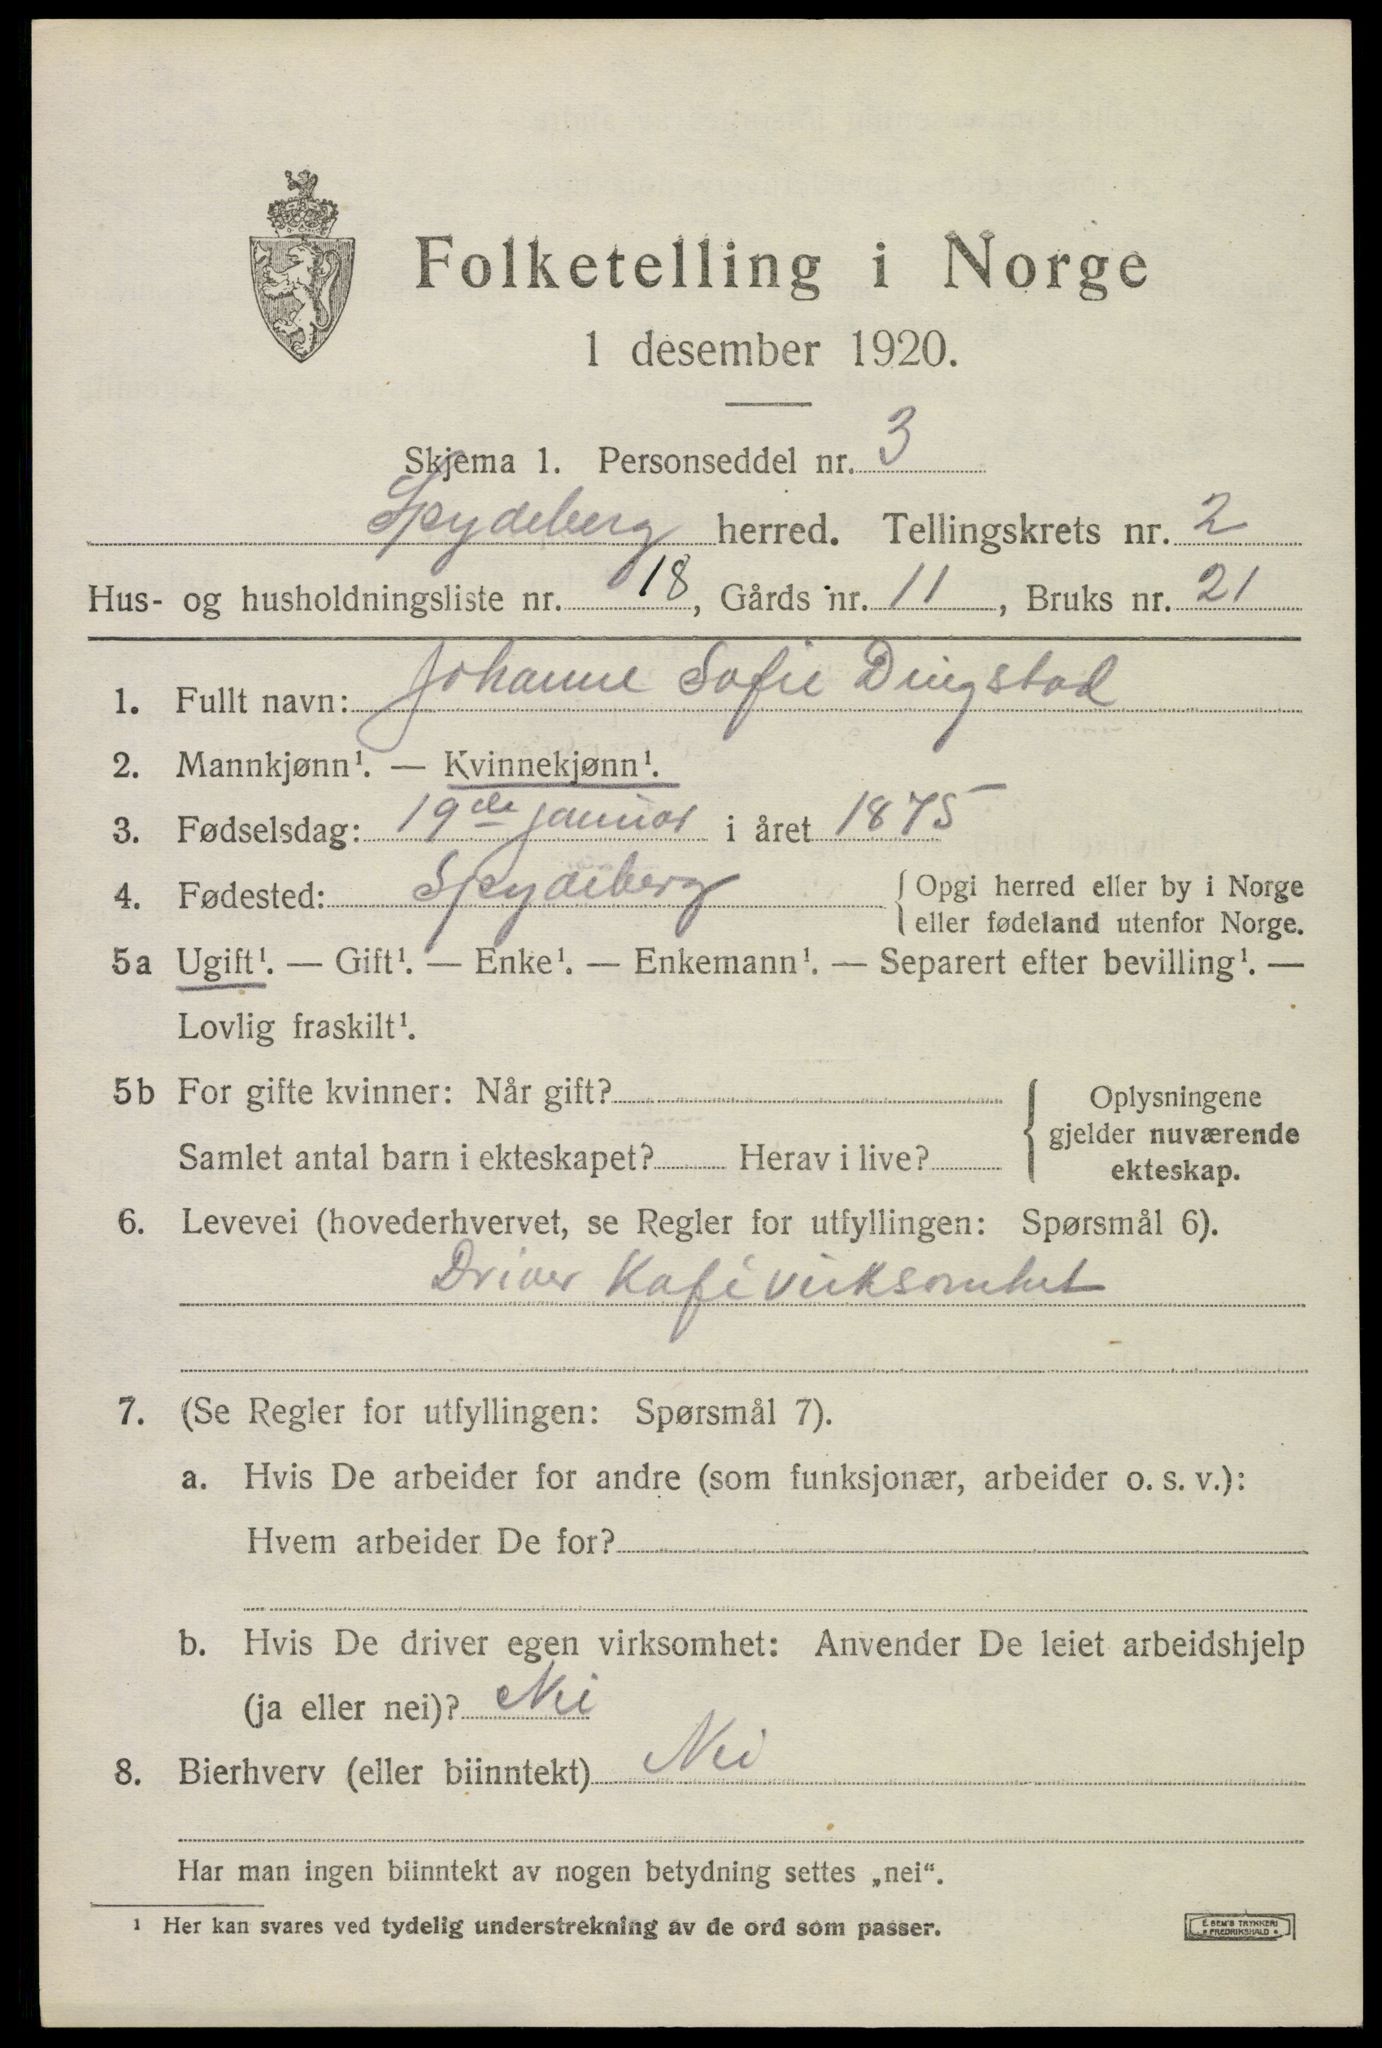 Folketelling i Norge
1 desember 1920.
Skjema 1. Personseddel nr. 3
Spydeberg herred. Tellingskrets nr. 2
Hus- og husholdningsliste nr. 18, Gårds nr. 11, Bruks nr. 21
1. Fullt navn: Johanne Sofie Dingstad
2. Mannkjønn¹. — Kvinnekjønn¹.
3. Fødselsdag: 19de januar i året 1875
4. Fødested: Spydeberg {Opgi herred eller by i Norge
eller fødeland utenfor Norge.
5a Ugift¹. — Gift¹. — Enke¹. — Enkemann¹. — Separert efter bevilling¹. —
Lovlig fraskilt¹.
5b For gifte kvinner: Når gift? { Oplysningene
gjelder nuværende
Samlet antal barn i ekteskapet? Herav i live?
ekteskap.
6. Levevei (hovederhvervet, se Regler for utfyllingen: Spørsmål 6).
Driver Kafévirksomhet
7. (Se Regler for utfyllingen: Spørsmål 7).
a. Hvis De arbeider for andre (som funksjonær, arbeider o. s. v.):
Hvem arbeider De for?
b. Hvis De driver egen virksomhet: Anvender De leiet arbeidshjelp
(ja eller nei)? Nei
8. Bierhverv (eller biinntekt) Nei
Har man ingen biinntekt av nogen betydning settes „nei“.
¹ Her kan svares ved tydelig understrekning av de ord som passer.
E. SEM'S TRYKKERI
FREDRIKSHALD